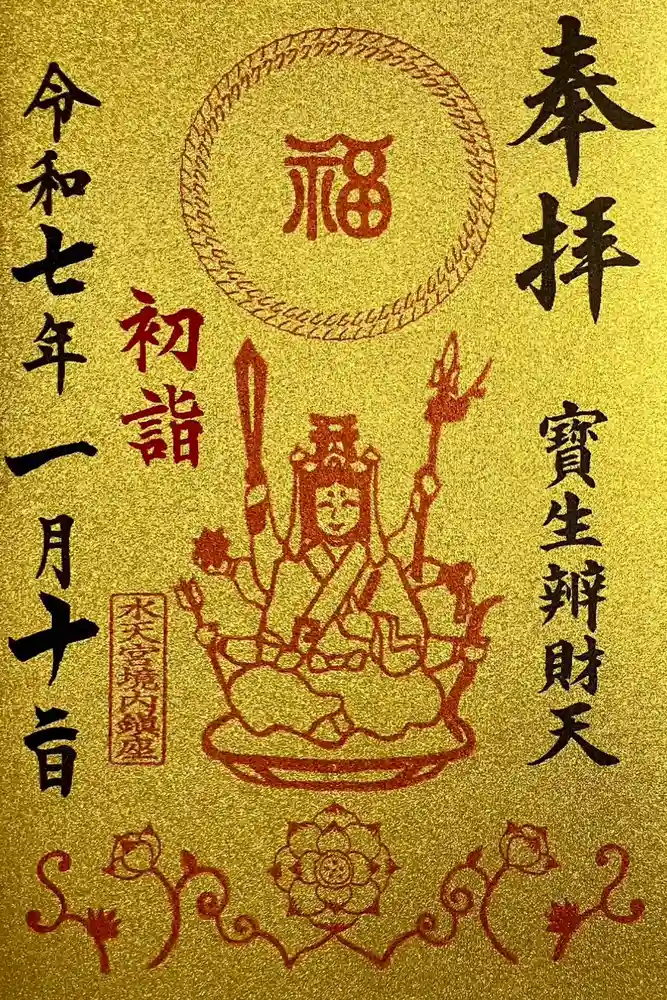 奉拝
寶生辨財天
福
初詣
水天宮境内鎮座
令和七年一月十二日